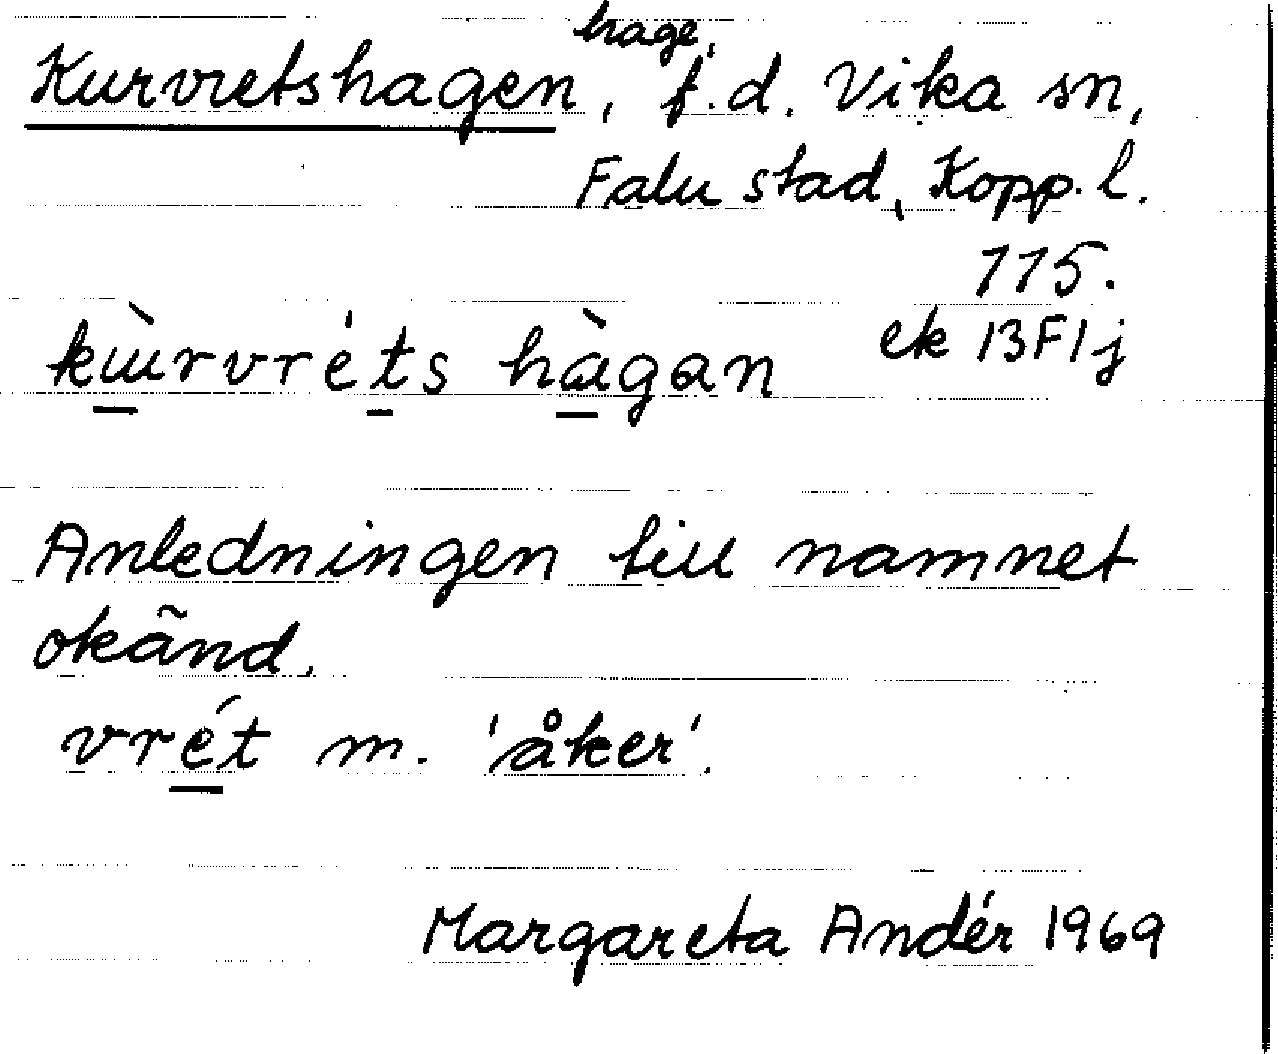 Kurvretshagen, hage, f.d. Vika sn,
Falu stad, Kopp. l.
115.
ek 13F1j
kɯ̀rvréts hàgan
Anledningen till namnet
okänd.
vrét m. 'åker'.
Margareta Andér 1969